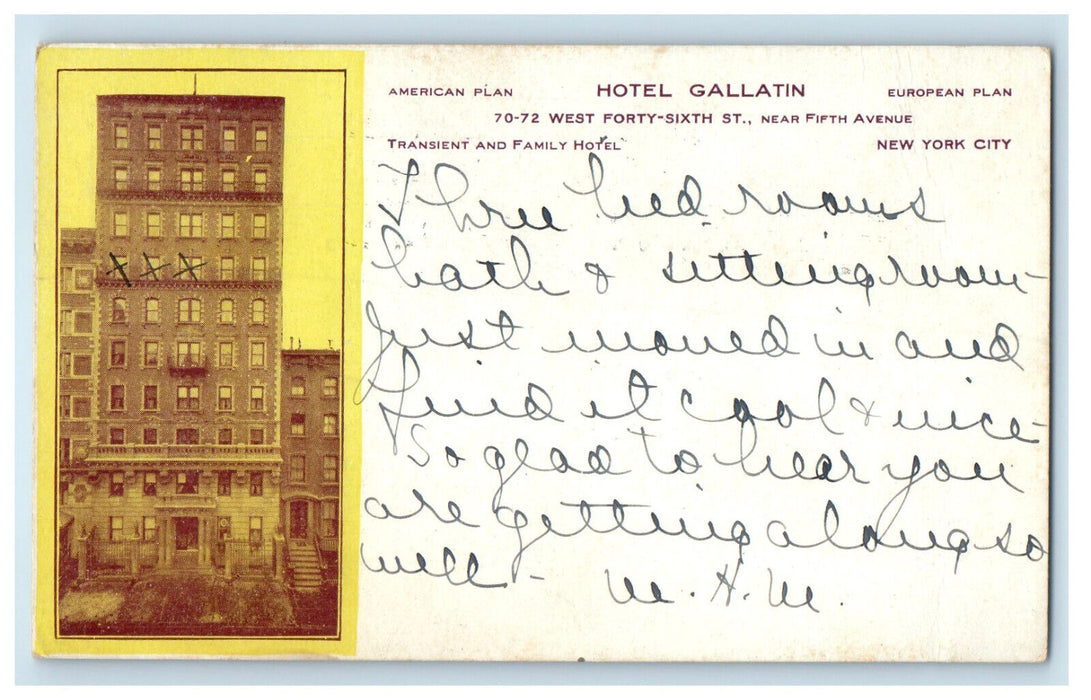 AMERICAN PLAN HOTEL GALLATIN EUROPEAN PLAN
70-72 WEST FORTY-SIXTH ST., NEAR FIFTH AVENUE
TRANSIENT AND FAMILY HOTEL NEW YORK CITY
Three bed rooms
bath & sitting room -
Just moved in and
find it cool & nice -
So glad to hear you
are getting along so
well - M. H. M.
X X X